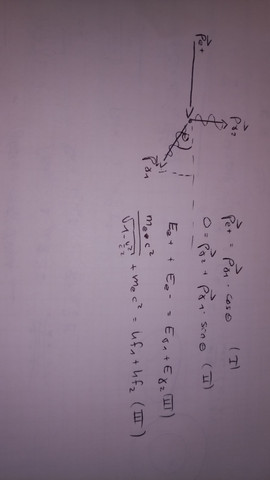 p⃗e+
p⃗γ2
θ
p⃗γ1
p⃗e+ = p⃗γ1 · cosθ (I)
0 = p⃗γ2 + p⃗γ1 · sinθ (II)
Ee+ + Ee- = Eγ1 + Eγ2 (III)
m₀·c² / √(1-v²/c²) + m₀c² = hf1 + hf2 (III)